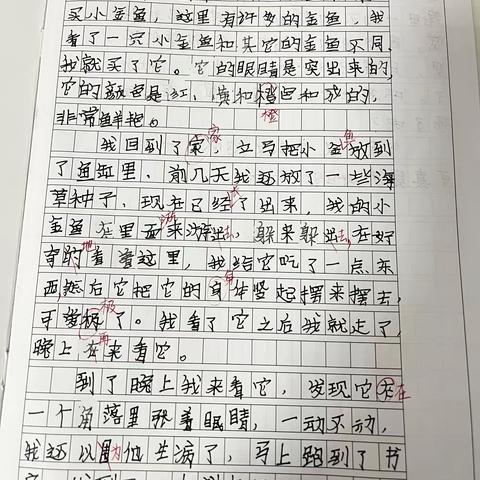 买小金鱼，这里有许多的金鱼，我
看了一只小金鱼和其它的金鱼不同，
我就买了它。它的眼睛是突出来的，
它的颜色是红，黄和橙色和成的，
橙
非常鲜艳。
我回到了家，立马把小金鱼放到
家
鱼
了鱼缸里，前几天我还放了一些海
草种子，现在已经长了出来，我的小
金鱼在里面来游出去，躲来躲出去，在好
奇的看着这里，我给它吃了一点东
地
西，然后它把它的身体竖起摆来摆去，
身
可爱极了。我看了它之后我就走了，
极
晚上在来看它。
再
到了晚上我来看它，发现它在
在
一个角落里张着眼睛，一动不动，
我还以为他生病了，马上跑到了书